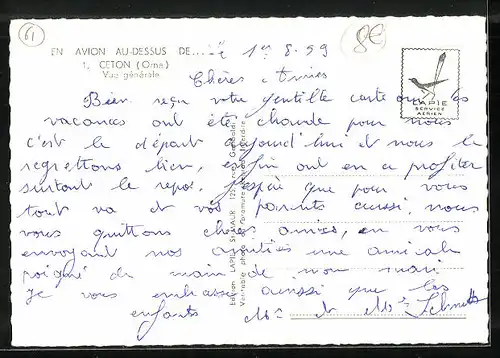 61
EN AVION AU-DESSUS DE....
Le 1er 8.59
8€
1. CETON (Orne)
Vue générale
Chères Amies
Bien reçu votre gentille carte oui les
vacances ont été chaude pour nous
c'est le départ aujourd'hui et nous le
regrettons bien, enfin ont en a profiter
surtout le repos. J'espère que pour vous
tout va et vos parents aussi, nous
vous quittons chères amies, en vous
envoyant nos amitiés une amicale
poigné de main de mon mari
je vous embrasse aussi que les
enfants Mr et Me
LAPIE
SERVICE
AÉRIEN
Edition LAPIE St-MAUR
Véritable photo